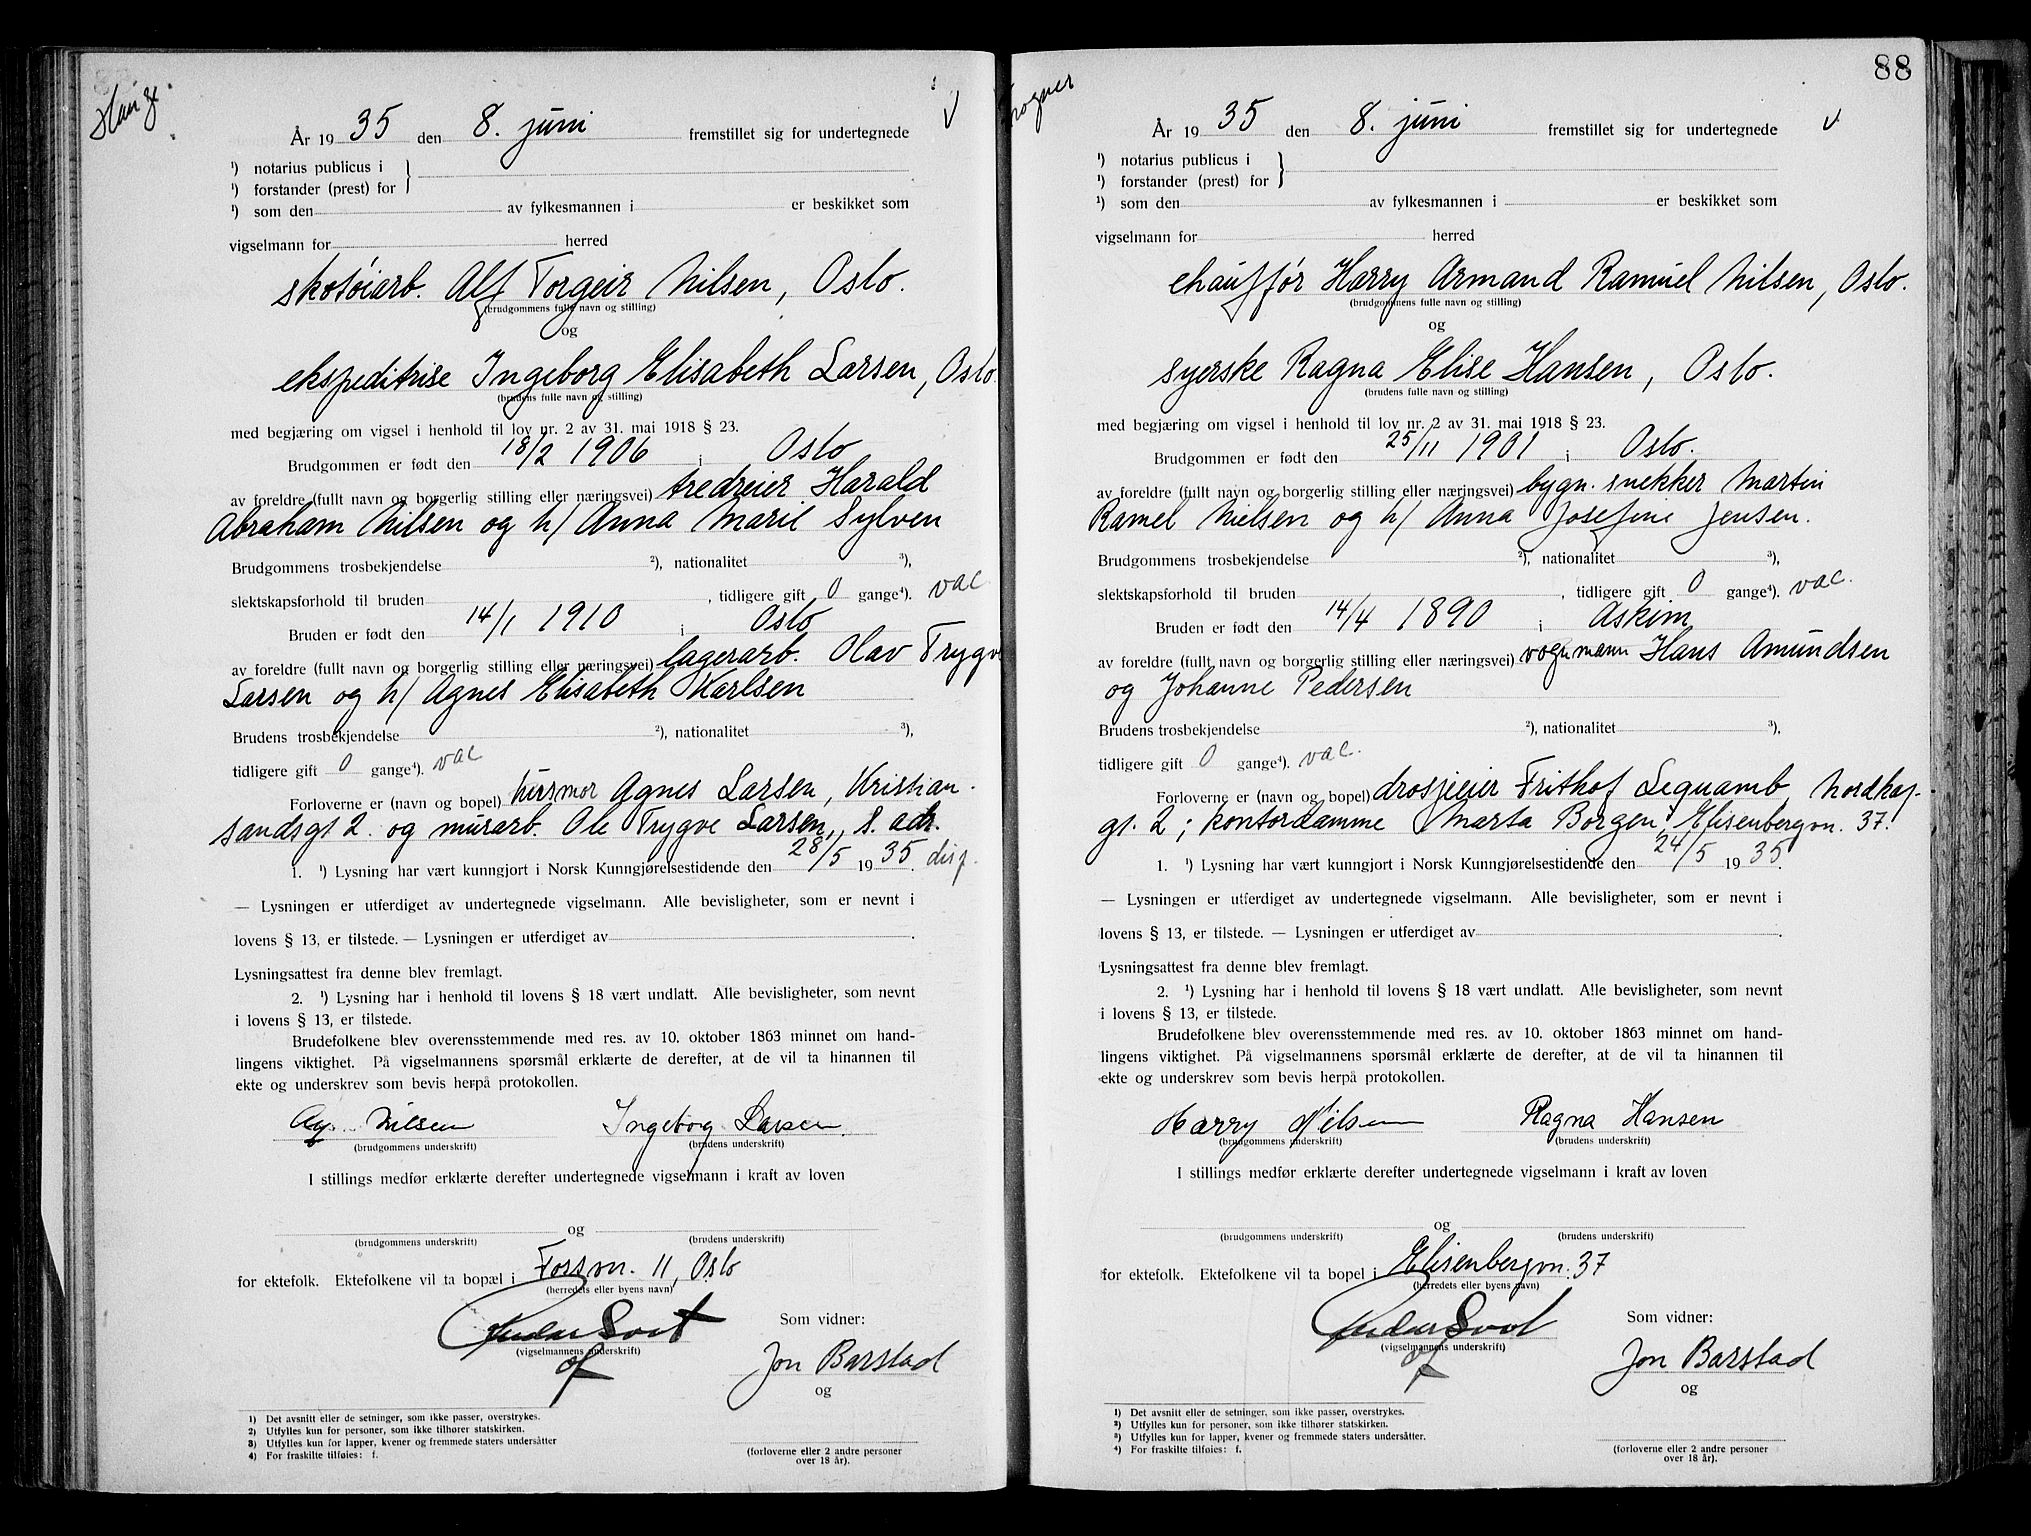 Hauge.
År 19 35 den 8. juni fremstillet sig for undertegnede
¹) notarius publicus i
¹) forstander (prest) for
¹) som den av fylkesmannen i er beskikket som
vigselmann for herred
skotøiarb. Alf Torgeir Nilsen, Oslo.
(brudgommens fulle navn og stilling)
og
ekspeditrise Ingeborg Elisabeth Larsen, Oslo.
(brudens fulle navn og stilling)
med begjæring om vigsel i henhold til lov nr. 2 av 31. mai 1918 § 23.
Brudgommen er født den 18/2 1906 i Oslo
av foreldre (fullt navn og borgerlig stilling eller næringsvei) tredreier Harald
Abraham Nilsen og h/ Anna Marie Sylven
Brudgommens trosbekjendelse ²), nationalitet ³),
slektskapsforhold til bruden , tidligere gift 0 gange⁴). vac
Bruden er født den 14/1 1910 i Oslo
av foreldre (fullt navn og borgerlig stilling eller næringsvei) lagerarb. Olav Trygve
Larsen og h/ Agnes Elisabeth Karlsen
Brudens trosbekjendelse ²), nationalitet ³),
tidligere gift 0 gange⁴). vac
Forloverne er (navn og bopel) husmor Agnes Larsen, Kristian-
sandsgt 2. og murarb. Ole Trygve Larsen, s. adr.
1. ¹) Lysning har vært kunngjort i Norsk Kunngjørelsestidende den 28/5 19 35. disp.
— Lysningen er utferdiget av undertegnede vigselmann. Alle bevisligheter, som er nevnt i
lovens § 13, er tilstede. — Lysningen er utferdiget av .
Lysningsattest fra denne blev fremlagt.
2. ¹) Lysning har i henhold til lovens § 18 vært undlatt. Alle bevisligheter, som nevnt
i lovens § 13, er tilstede.
Brudefolkene blev overensstemmende med res. av 10. oktober 1863 minnet om hand-
lingens viktighet. På vigselmannens spørsmål erklærte de derefter, at de vil ta hinannen til
ekte og underskrev som bevis herpå protokollen.
Nilsen Ingeborg Larsen.
(brudgommens underskrift) (brudens underskrift)
I stillings medfør erklærte derefter undertegnede vigselmann i kraft av loven
og
(brudgommens underskrift) (brudens underskrift)
for ektefolk. Ektefolkene vil ta bopæl i Fossvn. 11, Oslo
(herredets eller byens navn)
Som vidner:
(vigselmannens underskrift)
Jon Barstad
og
1) Det avsnitt eller de setninger, som ikke passer, overstrykes.
2) Utfylles kun for personer, som ikke tilhører statskirken.
3) Utfylles kun for lapper, kvener og fremmede staters undersåtter
4) For fraskilte tilføies: f.
(forloverne eller 2 andre personer
over 18 år).
88
År 19 35 den 8. juni fremstillet sig for undertegnede
¹) notarius publicus i
¹) forstander (prest) for
¹) som den av fylkesmannen i er beskikket som
vigselmann for herred
chauffør Harry Armand Ramuel Nilsen, Oslo.
(brudgommens fulle navn og stilling)
og
syerske Ragna Elise Hansen, Oslo.
(brudens fulle navn og stilling)
med begjæring om vigsel i henhold til lov nr. 2 av 31. mai 1918 § 23.
Brudgommen er født den 25/11 1901 i Oslo.
av foreldre (fullt navn og borgerlig stilling eller næringsvei) bygn. snekker Martin
Ramel Nielsen og h/ Anna Josefine Jensen.
Brudgommens trosbekjendelse ²), nationalitet ³),
slektskapsforhold til bruden , tidligere gift 0 gange⁴). vac.
Bruden er født den 14/4 1890 i Askim
av foreldre (fullt navn og borgerlig stilling eller næringsvei) vognmann Hans Amundsen
og Johanne Pedersen
Brudens trosbekjendelse ²), nationalitet ³),
tidligere gift 0 gange⁴). vac.
Forloverne er (navn og bopel) drosjeeier Frithof Nordkap-
gt. 2; kontordamme Marta Borgen, Elisenbergvn. 37.
1. ¹) Lysning har vært kunngjort i Norsk Kunngjørelsestidende den 24/5 19 35.
— Lysningen er utferdiget av undertegnede vigselmann. Alle bevisligheter, som er nevnt i
lovens § 13, er tilstede. — Lysningen er utferdiget av .
Lysningsattest fra denne blev fremlagt.
2. ¹) Lysning har i henhold til lovens § 18 vært undlatt. Alle bevisligheter, som nevnt
i lovens § 13, er tilstede.
Brudefolkene blev overensstemmende med res. av 10. oktober 1863 minnet om hand-
lingens viktighet. På vigselmannens spørsmål erklærte de derefter, at de vil ta hinannen til
ekte og underskrev som bevis herpå protokollen.
Harry Nilsen Ragna Hansen
(brudgommens underskrift) (brudens underskrift)
I stillings medfør erklærte derefter undertegnede vigselmann i kraft av loven
og
(brudgommens underskrift) (brudens underskrift)
for ektefolk. Ektefolkene vil ta bopel i Elisenbergvn. 37
(herredets eller byens navn)
Som vidner:
(vigselmannens underskrift)
Jon Barstad
og
¹) Det avsnitt eller de setninger, som ikke passer, overstrykes.
²) Utfylles kun for personer, som ikke tilhører statskirken.
³) Utfylles kun for lapper, kvener og fremmede staters undersåtter.
⁴) For fraskilte tilføies: f.
(forloverne eller 2 andre personer
over 18 år).